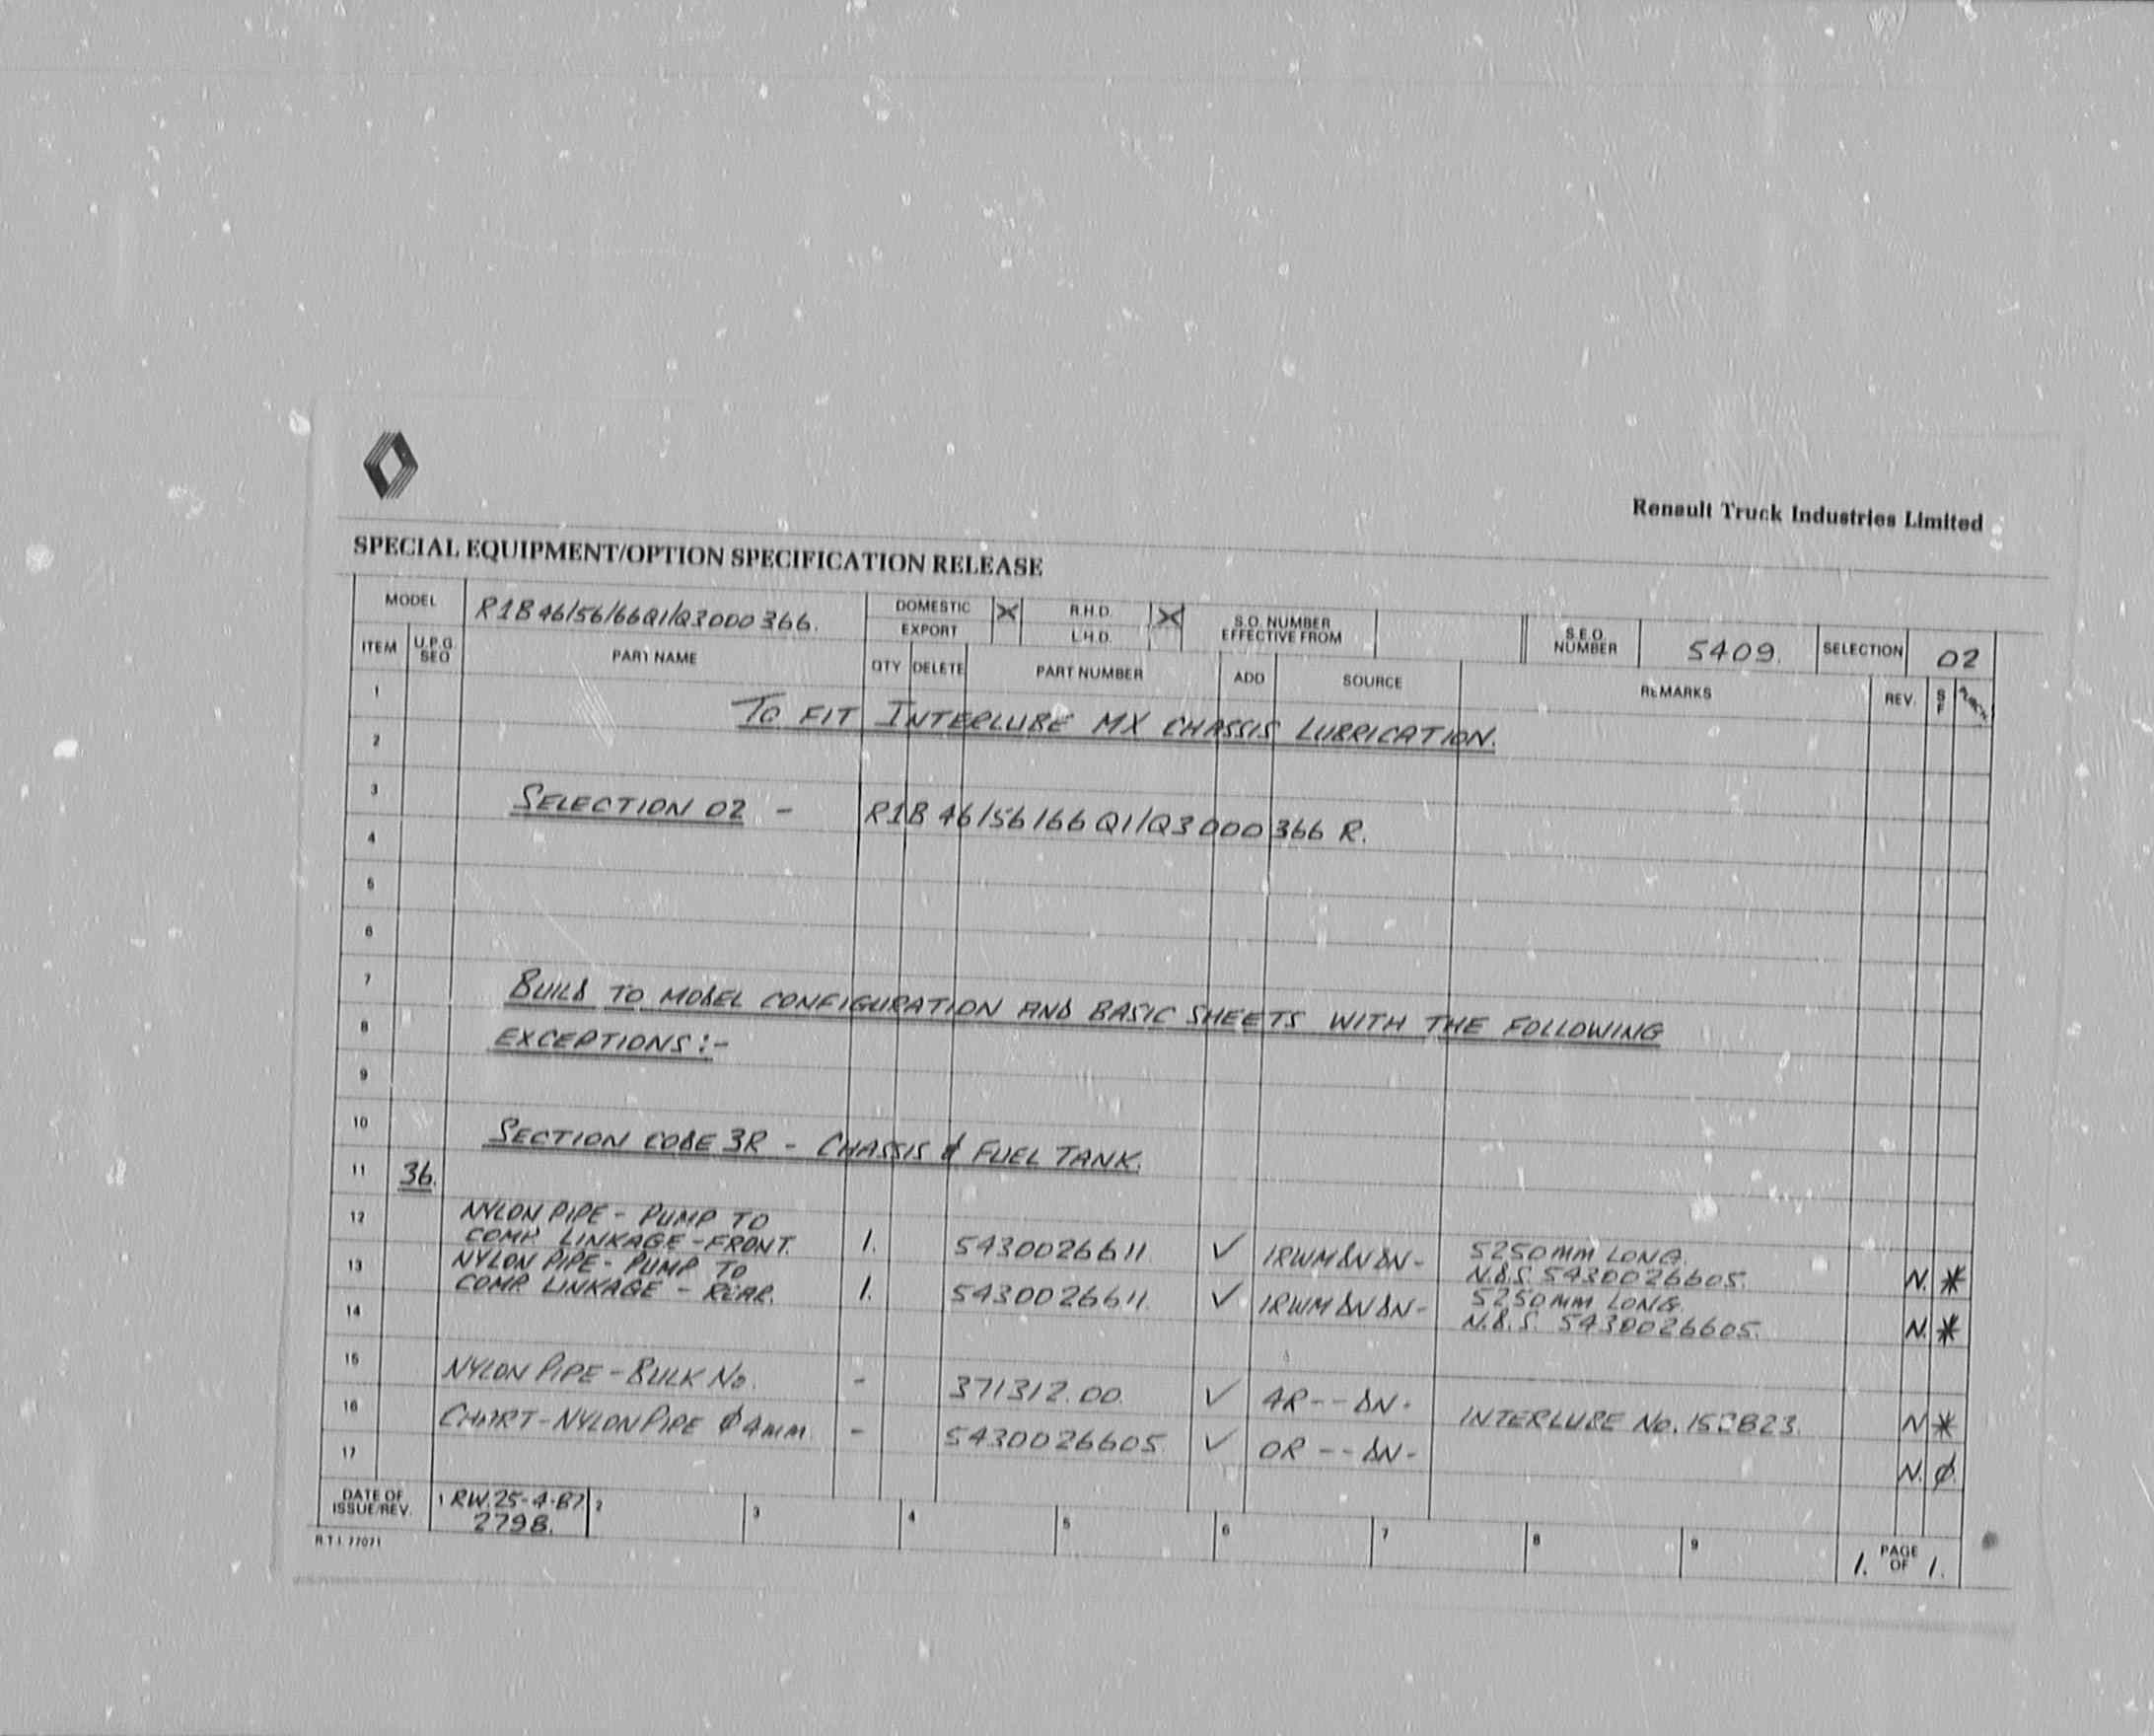 Renault Truck Industries Limited
SPECIAL EQUIPMENT/OPTION SPECIFICATION RELEASE
MODEL R1B46/56/66Q1/Q3000366. DOMESTIC X R.H.D. X S.O. NUMBER EFFECTIVE FROM S.E.O. NUMBER 5409. SELECTION 02
EXPORT L.H.D.
ITEM U.P.G. SEQ PART NAME QTY DELETE PART NUMBER ADD SOURCE REMARKS REV. S F
1 TO FIT INTERLUBE MX CHASSIS LUBRICATION.
2
3 SELECTION 02 - R1B 46/56/66 Q1/Q3 000 366 R.
4
5
6
7 BUILD TO MODEL CONFIGURATION AND BASIC SHEETS WITH THE FOLLOWING
8 EXCEPTIONS:-
9
10 SECTION CODE 3R - CHASSIS & FUEL TANK.
11 36.
12 NYLON PIPE - PUMP TO
COMP. LINKAGE - FRONT. 1. 5430026611. ✓ 1RWMDNDN- 5250MM LONG.
N.D.S. 5430026605. N. *
13 NYLON PIPE - PUMP TO
COMP. LINKAGE - REAR. 1. 5430026611. ✓ 1RWMDNDN- 5250MM LONG.
N.D.S. 5430026605. N. *
14
15 NYLON PIPE - BULK No. - 371312.00. ✓ 4R--DN- INTERLUBE No. N *
16 CHART - NYLON PIPE Ø 4MM - 5430026605 ✓ OR--DN- N. Ø.
17
DATE OF ISSUE/REV. 1 RW. 25-4-87 2 3 4 5 6 7 8 9 1. PAGE OF 1.
2798.
R.T.I. 77071